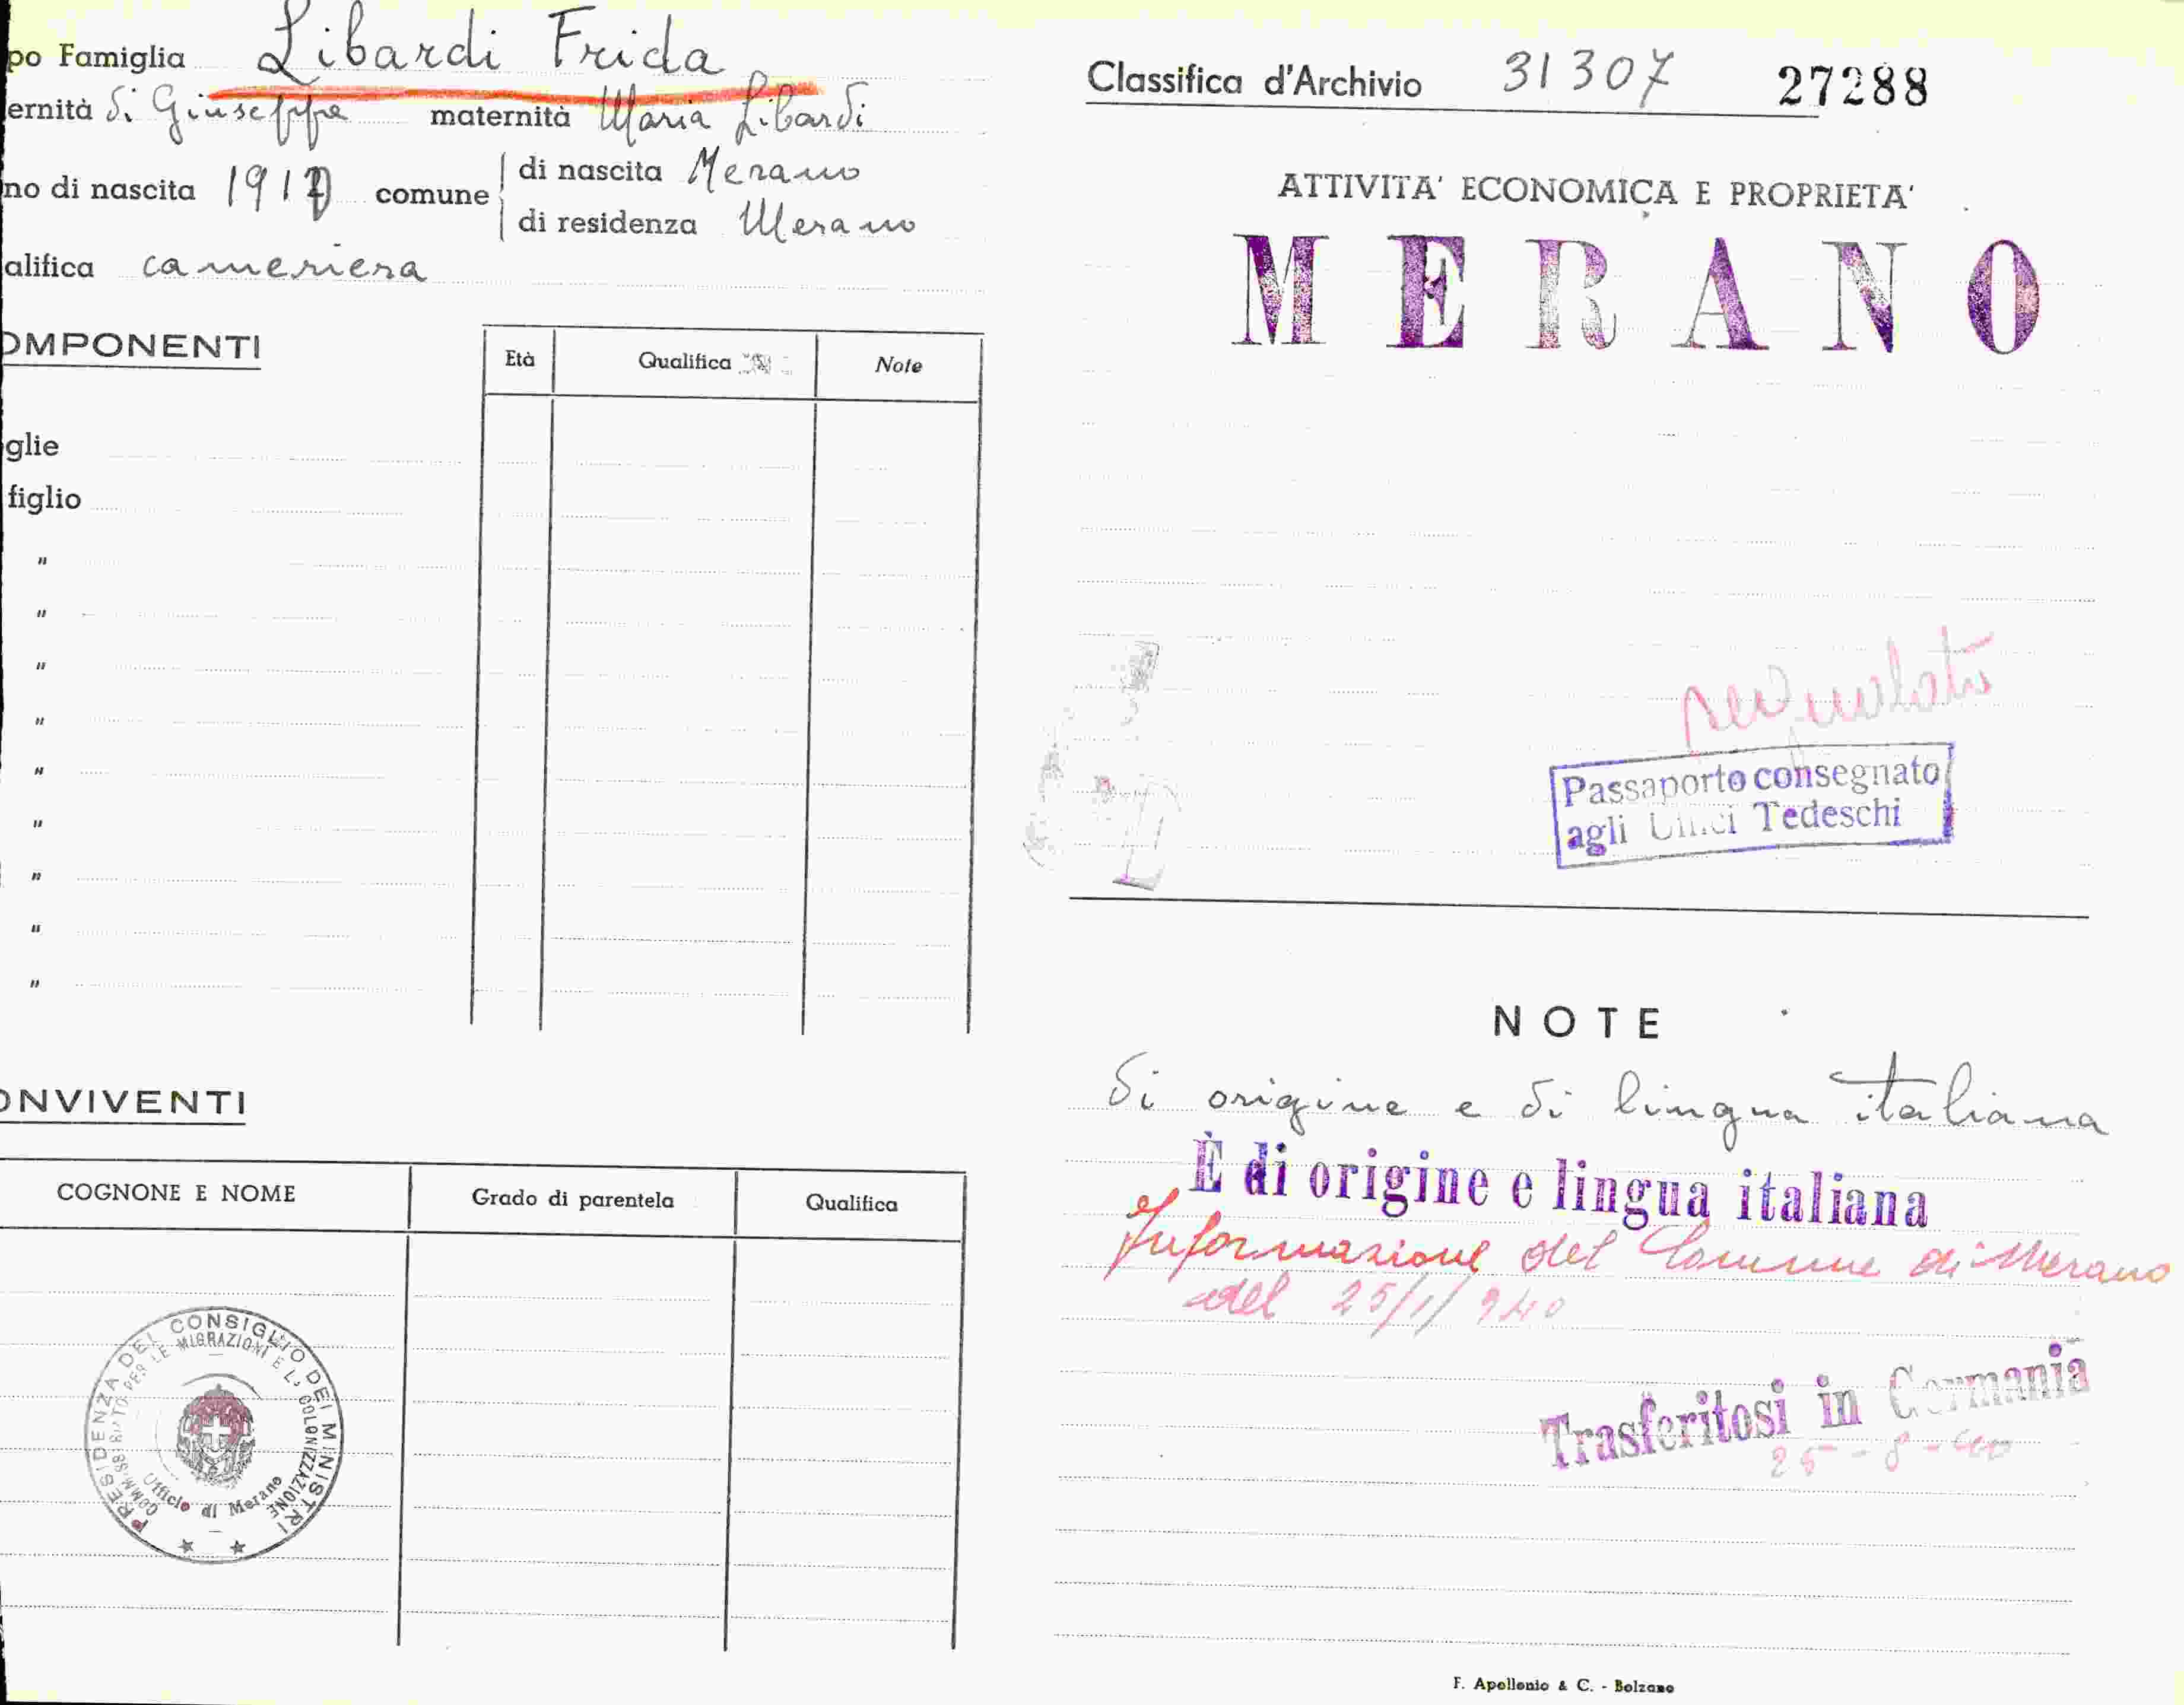 po Famiglia Libardi Frida
ernità di Giuseppe maternità Maria Libardi
no di nascita comune di nascita Merano
di residenza Merano
alifica cameriera
OMPONENTI
Età Qualifica Note
glie
figlio
"
"
"
"
"
"
"
"
"
ONVIVENTI
COGNONE E NOME Grado di parentela Qualifica
PRESIDENZA DEL CONSIGLIO DEI MINISTRI
COMMISSARIATO PER LE MIGRAZIONI E LA COLONIZZAZIONE
Ufficio di Merano
Classifica d'Archivio 31307 27288
ATTIVITA' ECONOMICA E PROPRIETA'
MERANO
Passaporto consegnato
agli Uffici Tedeschi
NOTE
di origine e di lingua italiana
È di origine e lingua italiana
Informazione del Comune di Merano
del 25/1/940
Trasferitosi in Germania
25-8-40
F. Apollonio & C. - Bolzano